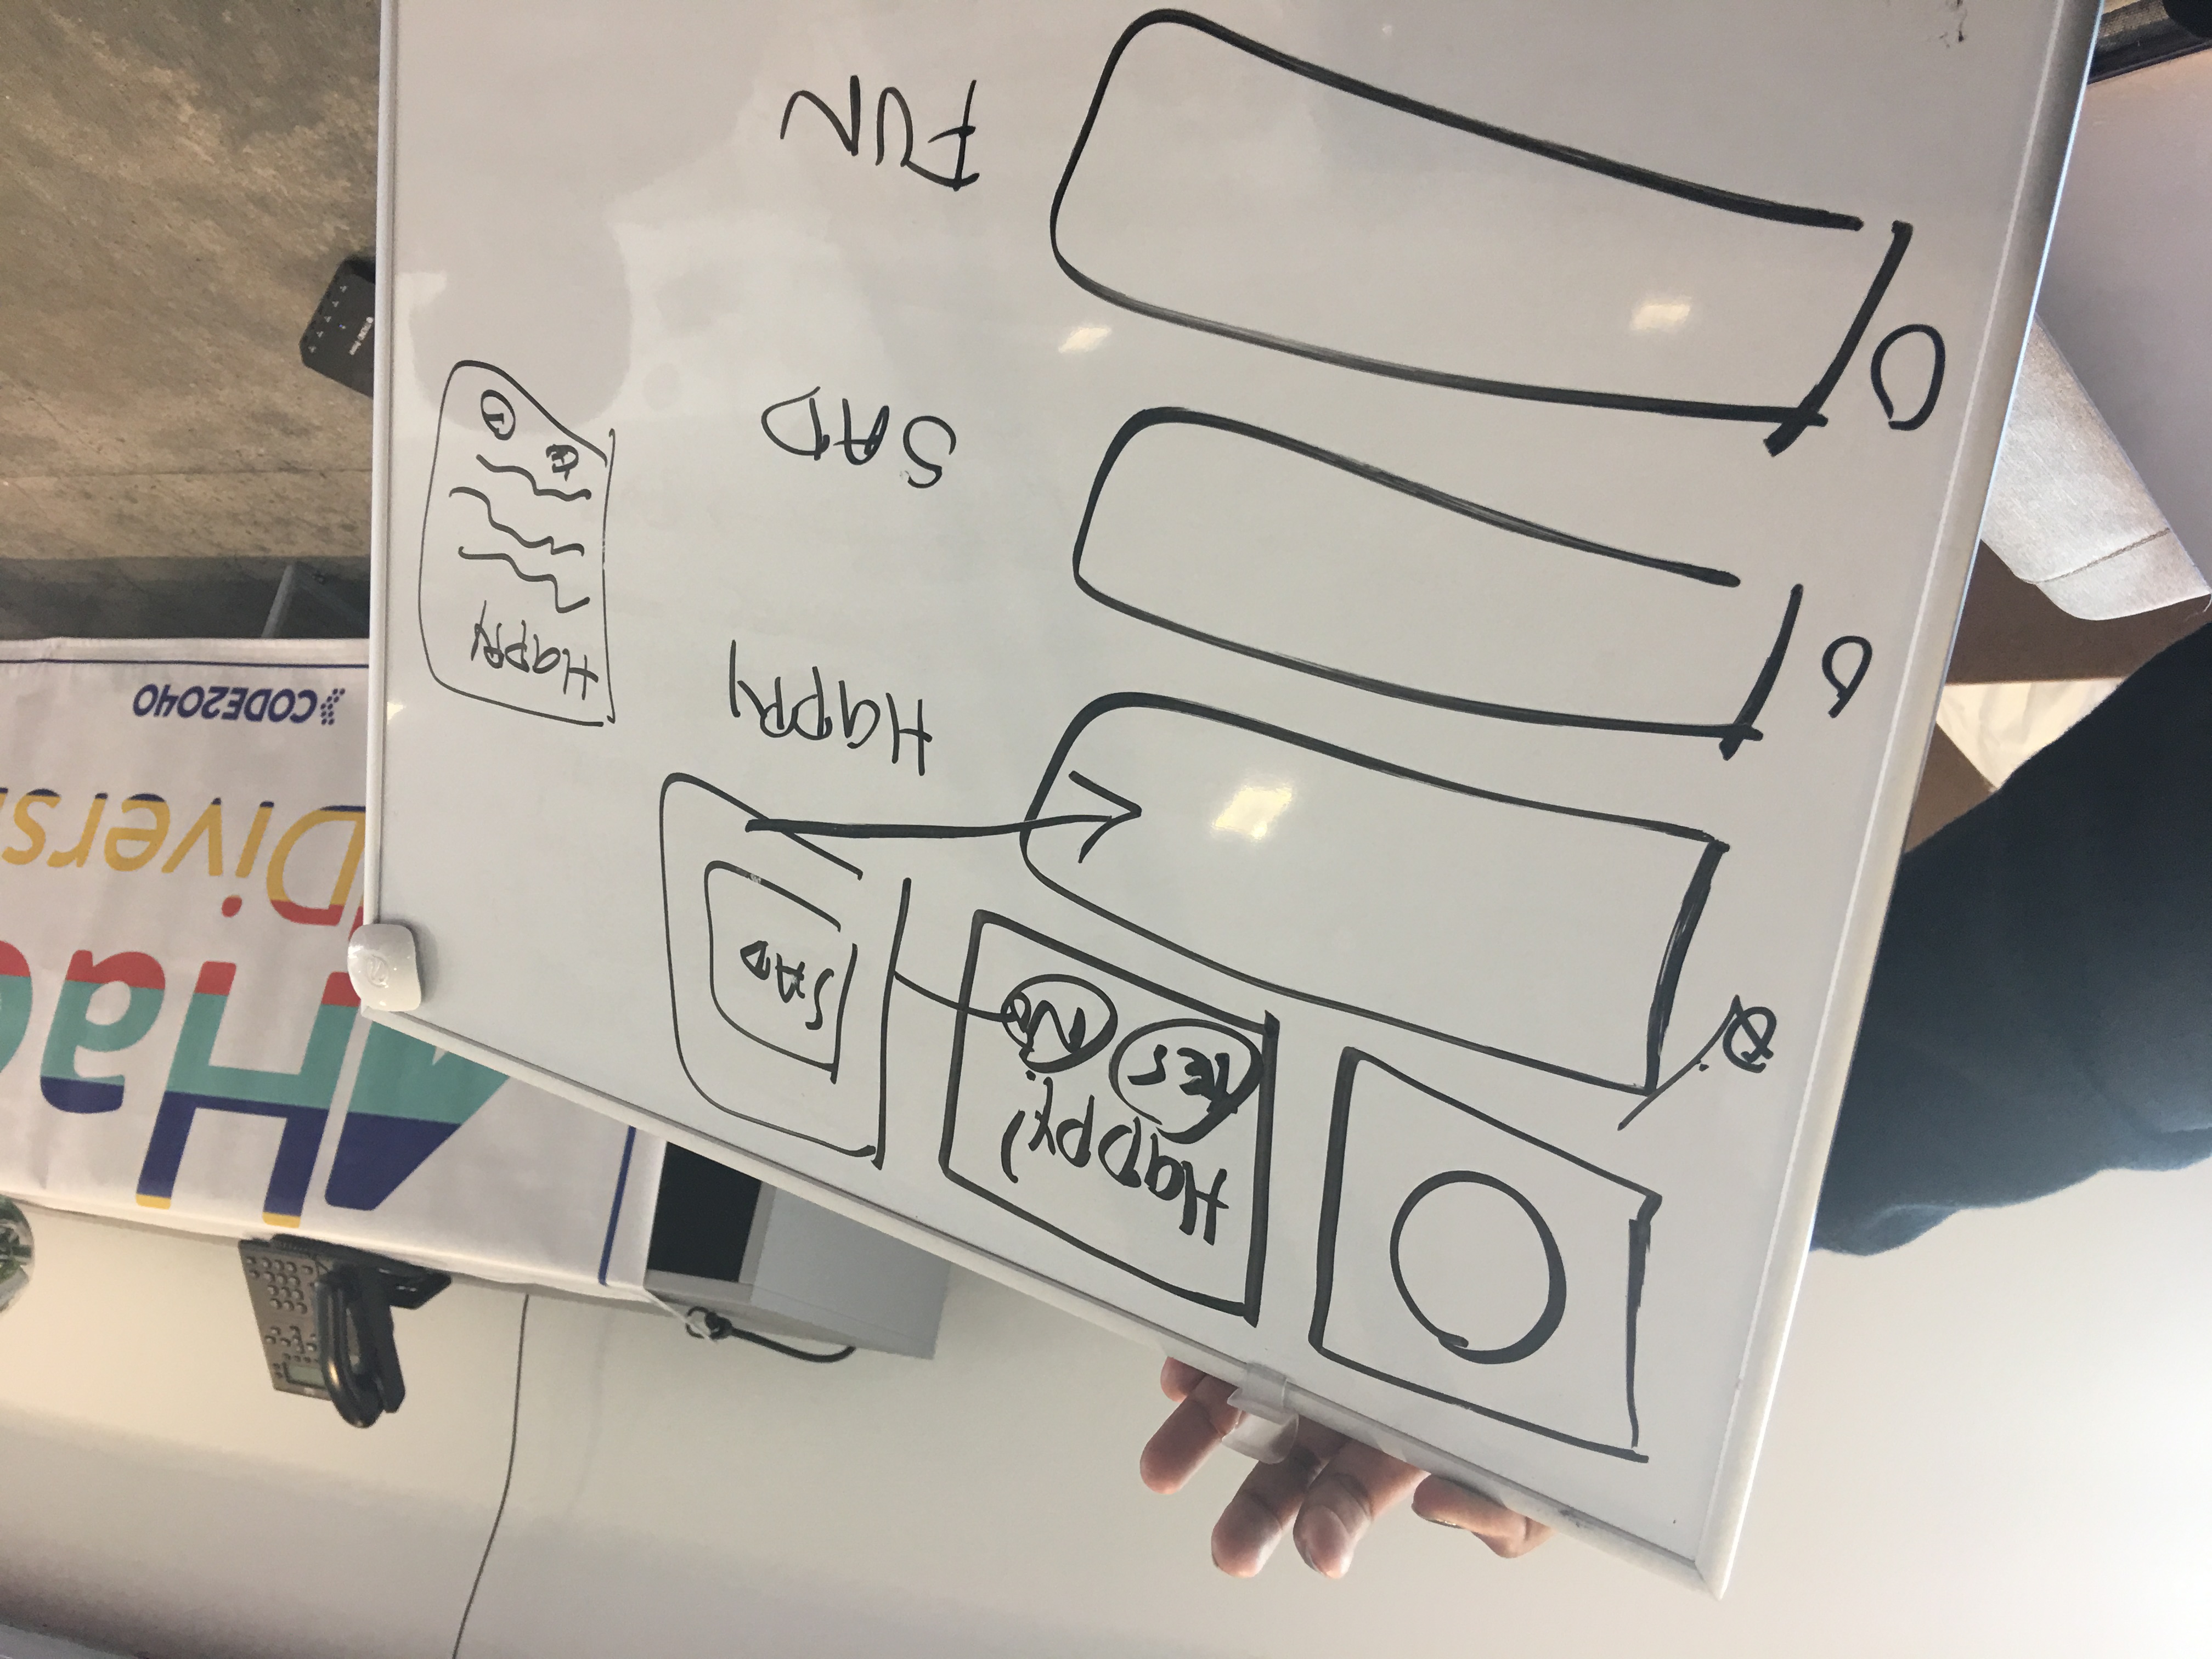 Happy?
YES NO
SAD
HAPPY
Happy
SAD
FUN
Hac
Divers
CODE2040